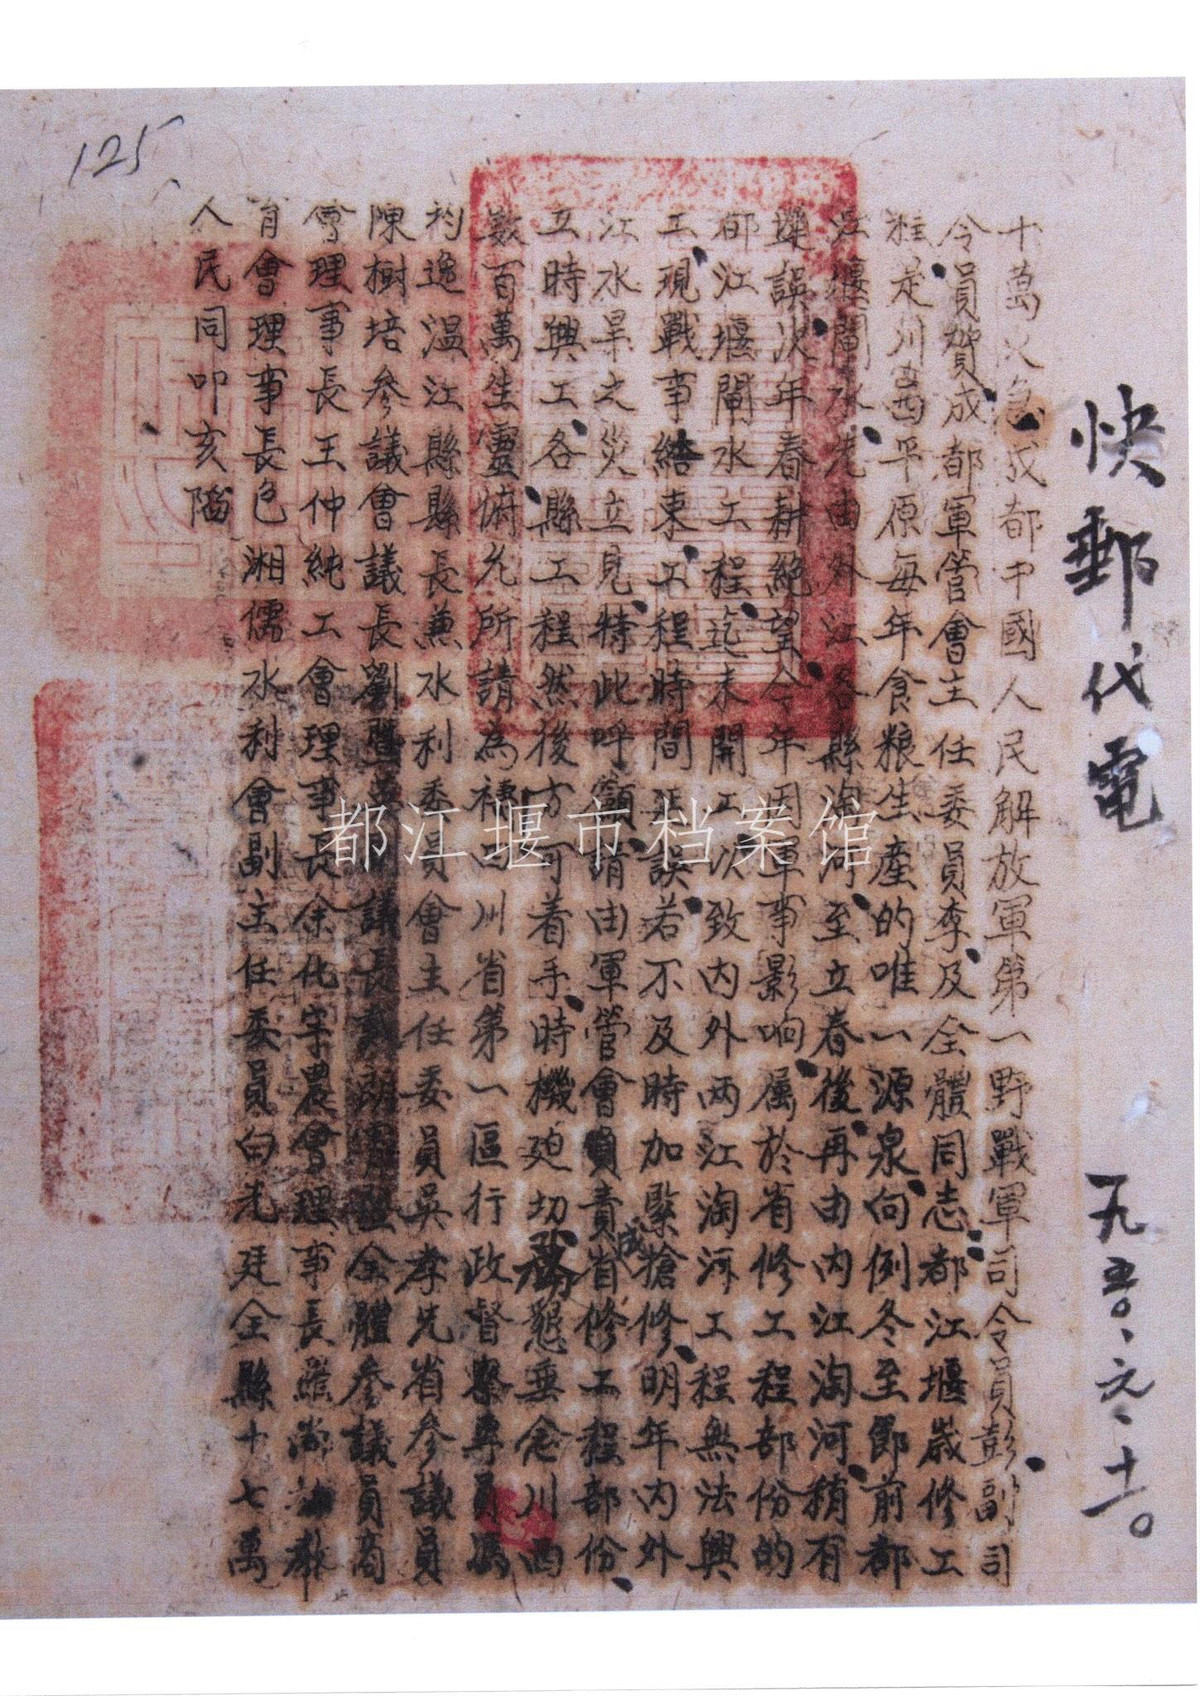 快郵代電
一九五〇、元、十一。
十萬火急成都中國人民解放軍第一野戰軍司令員彭副司
令員賀成都軍管會主任委員李及全體同志都江堰歲修工
程是川西平原每年食粮生產的唯一源泉向例冬至節前都
江堰閘水先由外江各縣淘河至立春後再由内江淘河稍有
誤次年春耕絕望今年因軍事影响屬於省修工程部份的
都江堰閘水工程迄未開工以致内外两江淘河工程無法興
工現戰事結束工程時間誤若不及時加緊搶修明年内外
江水旱之災立見特此呼籲請由軍管會負責省修工程部份
立時興工各縣工程然後方可着手時機廹切懇垂念川西
數百萬生靈俯允所請為禱四川省第一區行政督察專員馮
灼逸温江縣縣長兼水利委員會主任委員吳孝先省參議員
陳樹培參議會議長劉議長全體參議員商
會理事長王仲純工會理事長余化宇農會理事長羅教
育會理事長色湘儒水利會副主任委員向光廷全縣十七萬
人民同叩亥
125
都江堰市档案馆